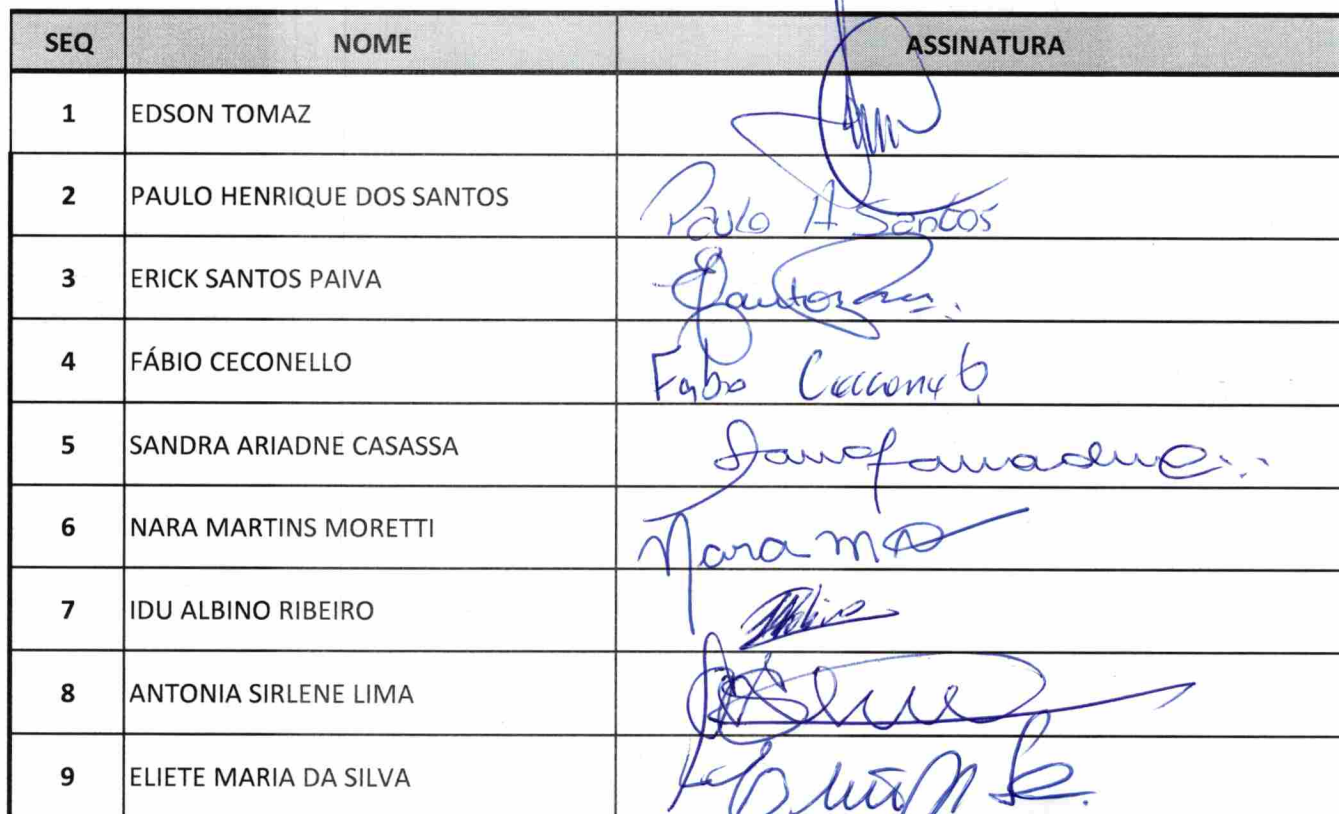 SEQ NOME ASSINATURA
1 EDSON TOMAZ
2 PAULO HENRIQUE DOS SANTOS Paulo H Santos
3 ERICK SANTOS PAIVA
4 FÁBIO CECONELLO Fabio
5 SANDRA ARIADNE CASASSA
6 NARA MARTINS MORETTI Nara
7 IDU ALBINO RIBEIRO
8 ANTONIA SIRLENE LIMA
9 ELIETE MARIA DA SILVA